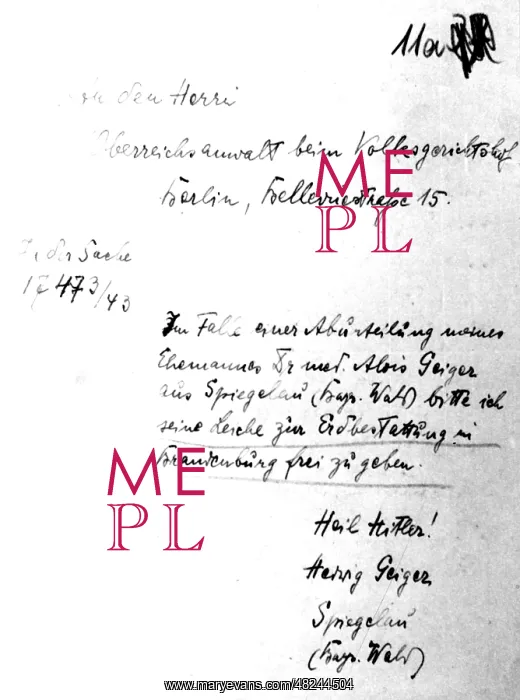 11a
An den Herrn
Oberreichsanwalt beim Volksgerichtshof
Berlin, Bellevuestraße 15.
In der Sache
17 473/43
Im Falle einer Aburteilung meines
Ehemannes Dr med. Alois Geiger
aus Spiegelau (Bayr. Wald) bitte ich
seine Leiche zur Erdbestattung in
Brandenburg frei zu geben.
Heil Hitler!
Hedwig Geiger
Spiegelau
(Bayr. Wald)
ME
PL
ME
PL
www.maryevans.com/48244504